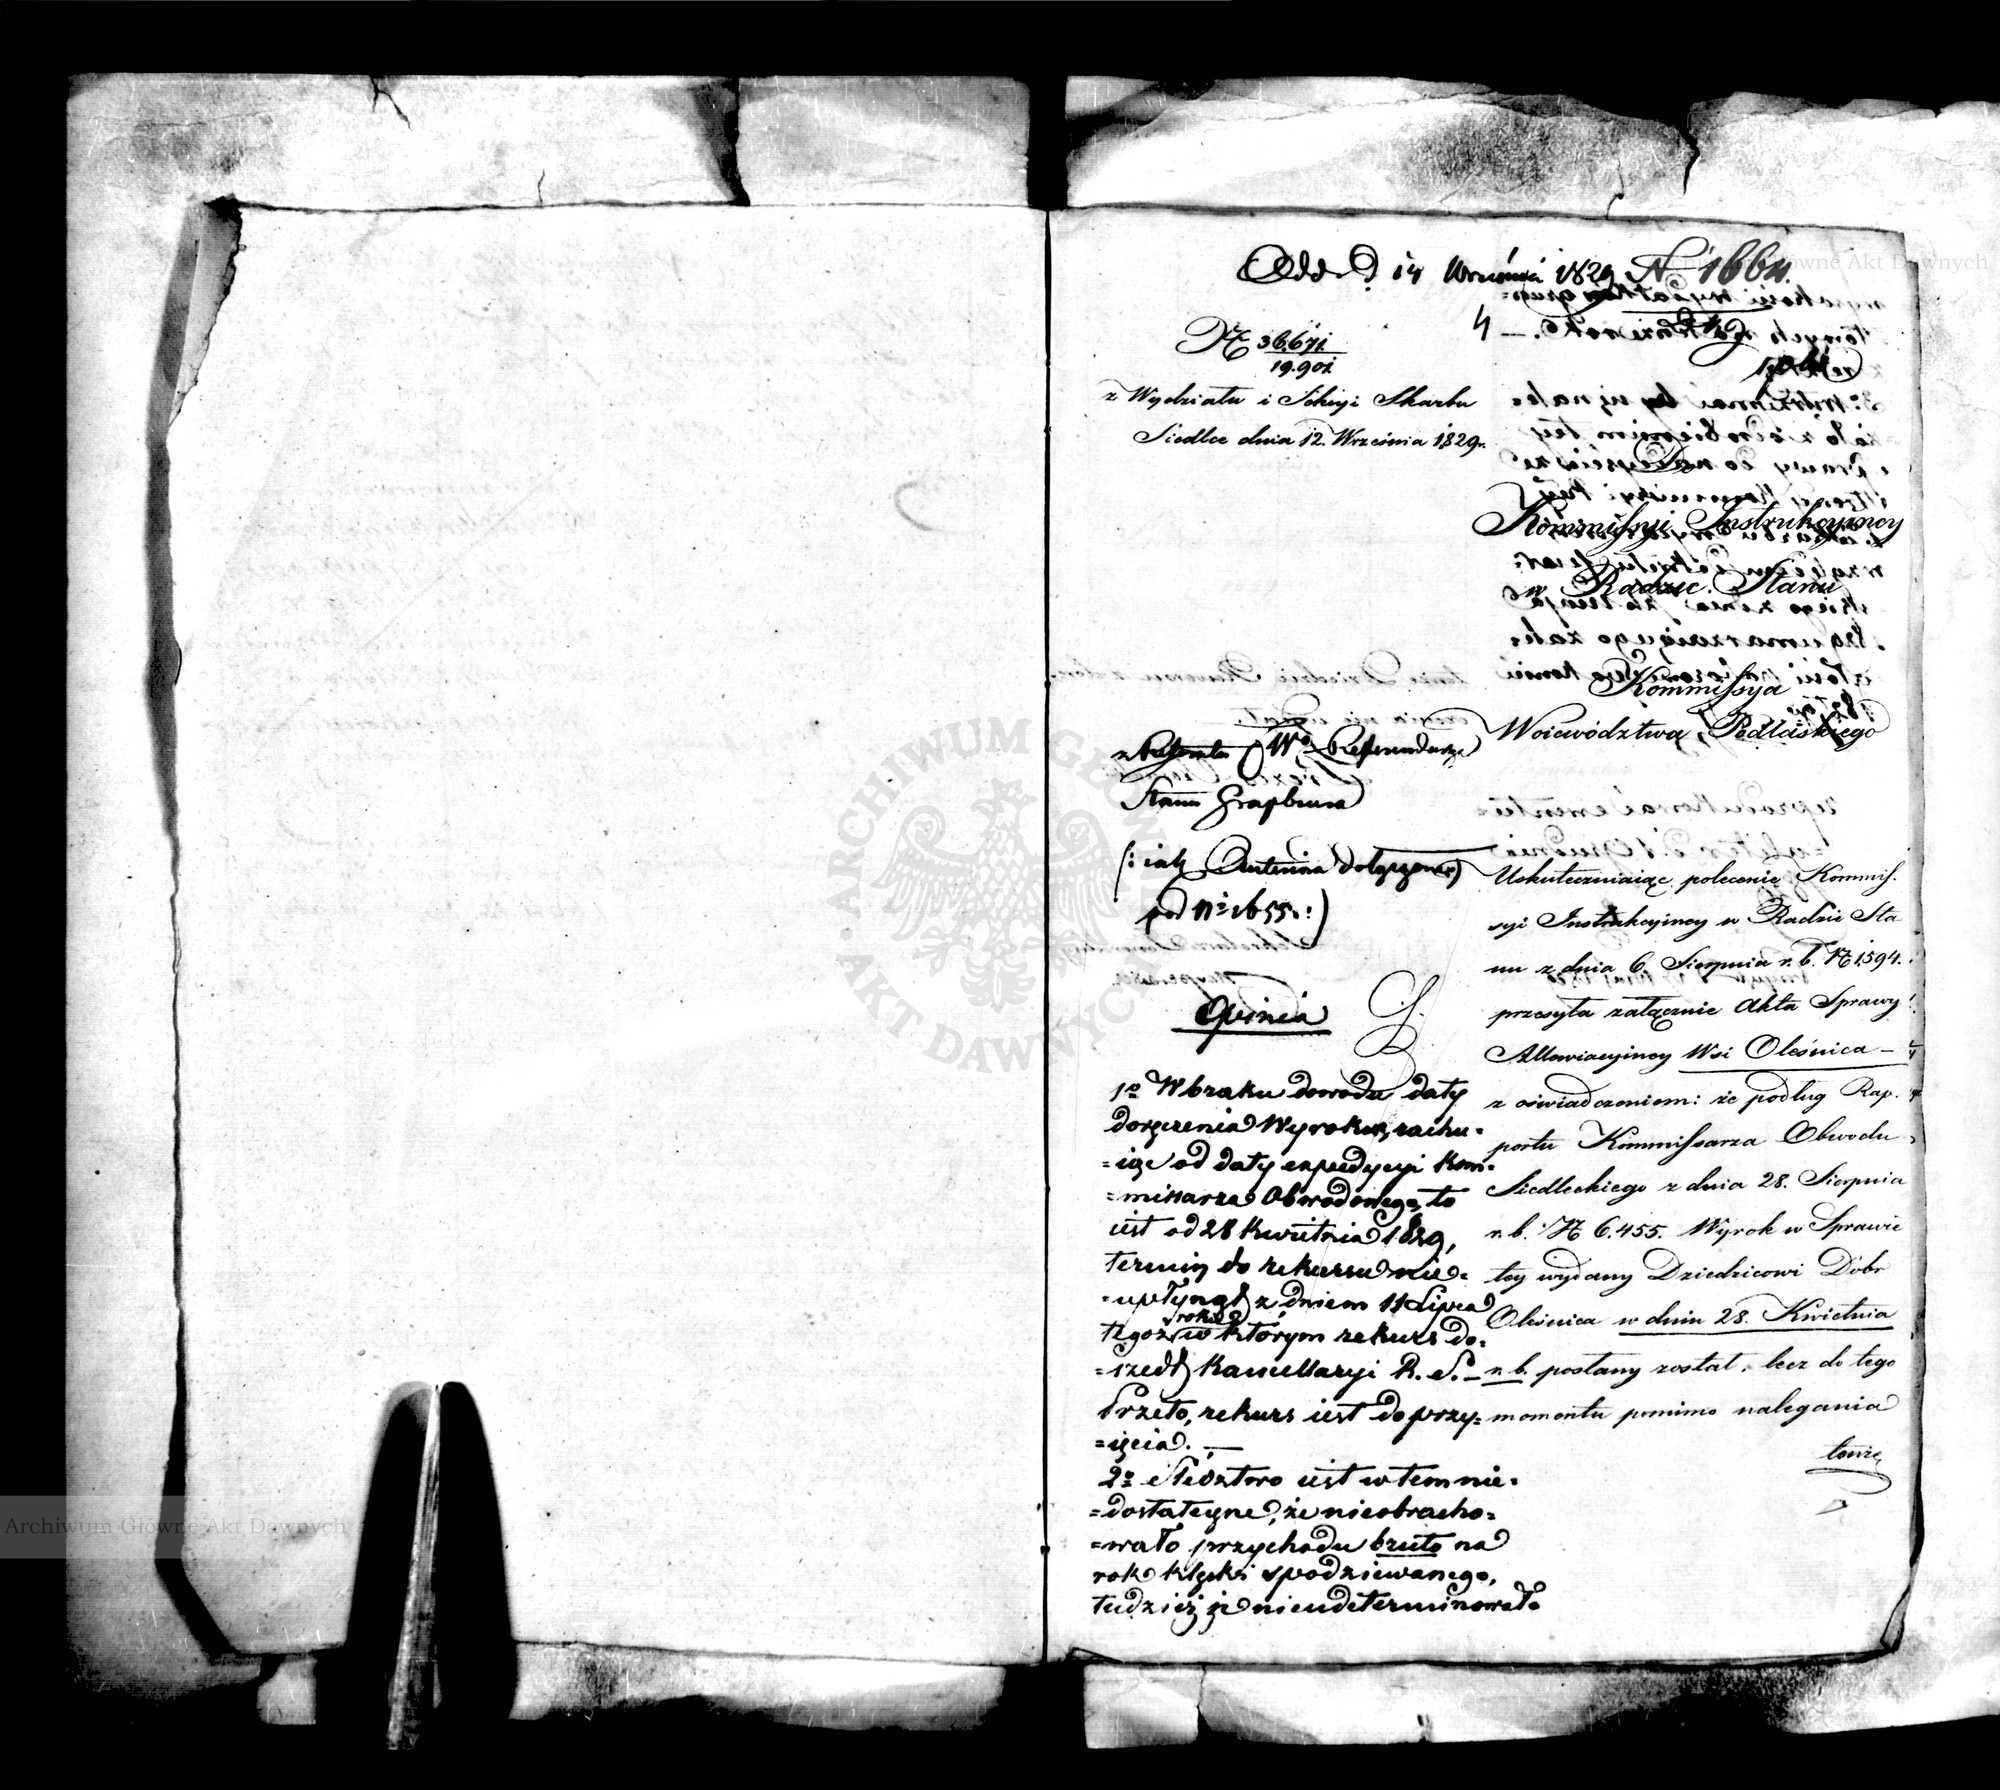 Odd. d. 14 Września 1829 N 1664.
4
N 36.671.
19.901.
z Wydziału i Sekcyi Skarbu
Siedlce dnia 12. Września 1829r.
Kommissyi Instrukcyiney
w Radzie Stanu
Kommissya
Woiewództwa Podlaskiego
Wo Referendarza
Stanu Grapbrusa
(: iak Antenina dołączonej
pod No 1655. :)
Opinia
1o W braku dowodu daty
doręczenia Wyroku, rachu=
=iąc od daty expedycyi Kom=
=missarza Obwodowego, to
iest od 28 Kwietnia 1829,
termin do rekursu nie=
=upłynął z dniem 11 Lipca
tegoż roku w którym rekurs do=
=szedł Kancellaryi R. S. —
Przeto, rekurs iest do przy=
=ięcia. —
2o Śledztwo iest w tem nie=
=dostateczne, że nieobracho=
=wało przychodu brutto na
rok klęski spodziewanego,
tudzież że nieudeterminowało
Uskuteczniaiąc polecenie Kommis=
syi Instrukcyiney w Radzie Sta
nu z dnia 6. Sierpnia r. b. N 1,594.
przesyła załącznie Akta Sprawy
Allewiacyiney Wsi Oleśnica —
z oświadczeniem: że podług Rap=
portu Kommissarza Obwodu
Siedleckiego z dnia 28. Sierpnia
r. b. N 6.455. Wyrok w Sprawie
tey wydany Dziedzicowi Dóbr
Oleśnica w dniu 28. Kwietnia
r. b. posłany został, lecz do tego
momentu pomimo nalegania
tenże
ARCHIWUM GŁÓWNE AKT DAWNYCH
Archiwum Główne Akt Dawnych
Archiwum Główne Akt Dawnych